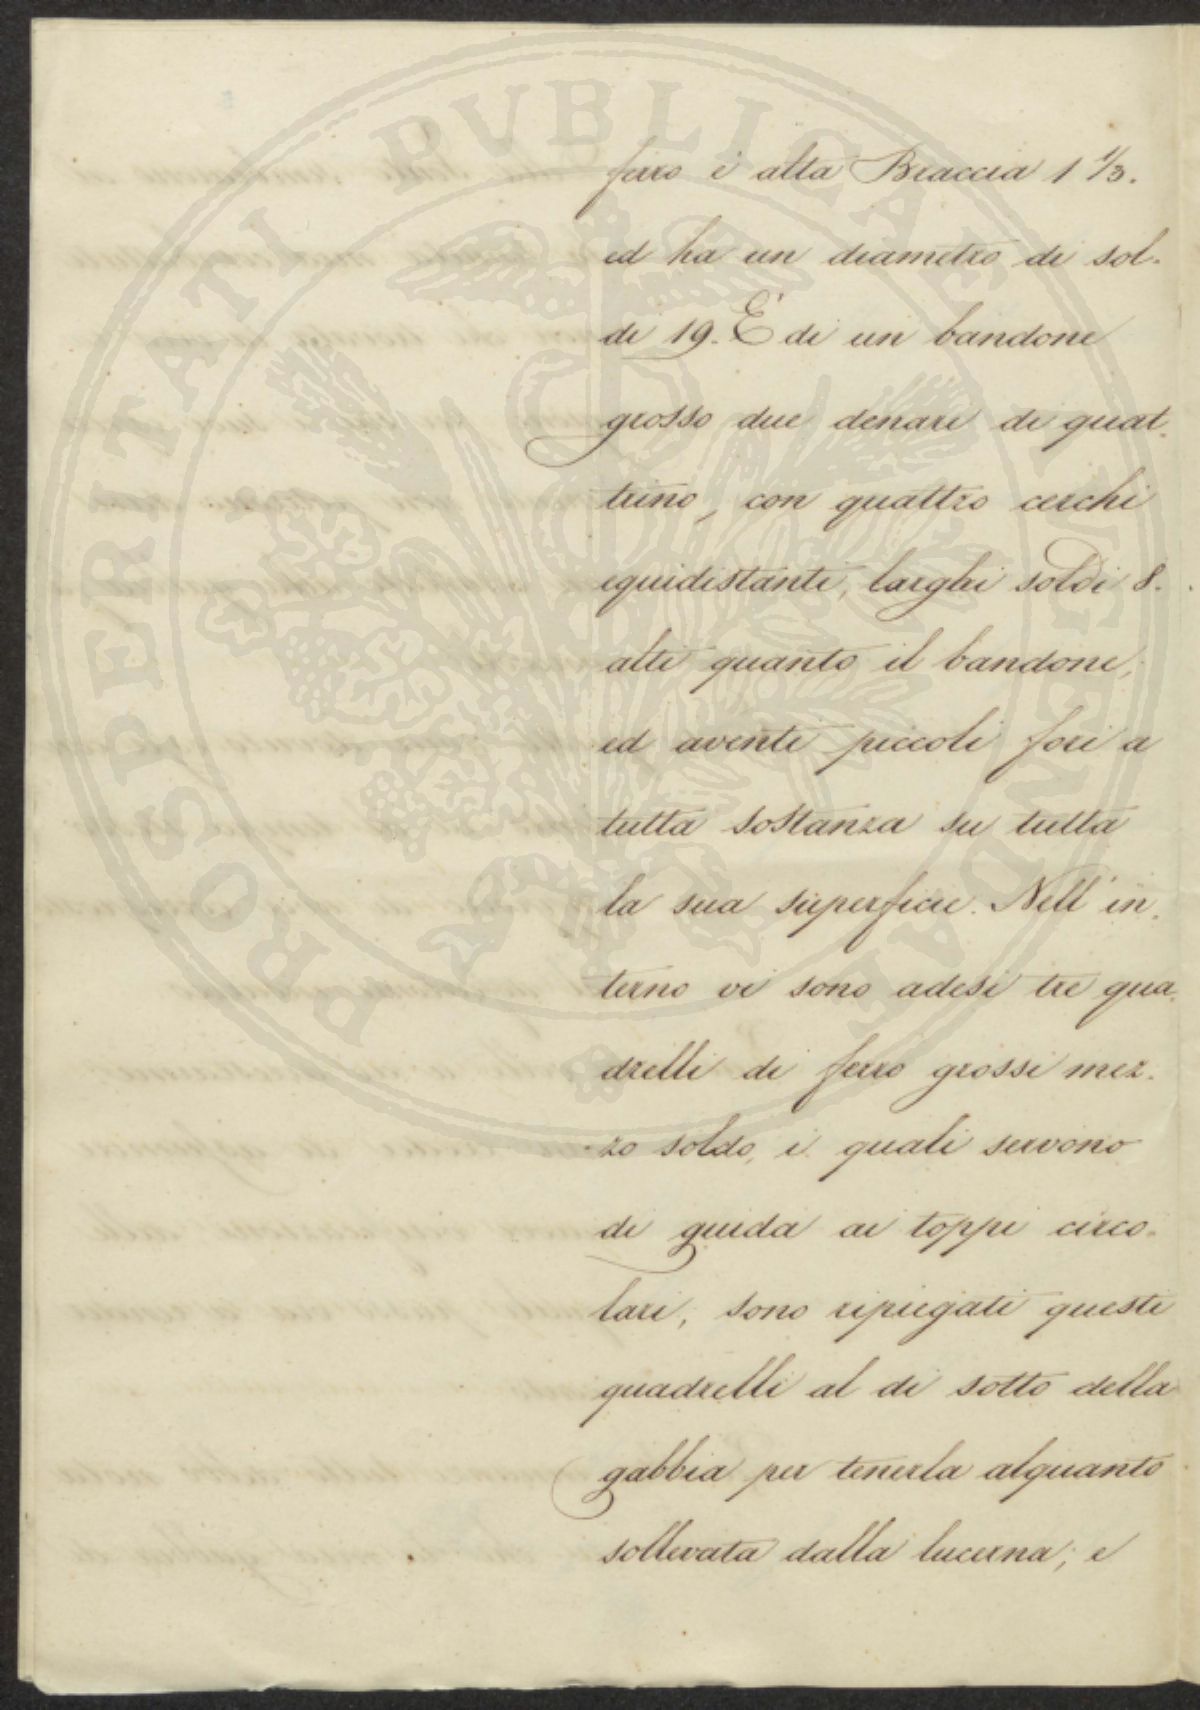 ferro è alta Braccia 1 1/3.
ed ha un diametro di sol-
di 19. È di un bandone
grosso due denari di quat-
trino, con quattro cerchi
equidistanti, larghi soldi 8.
alti quanto il bandone,
ed aventi piccoli fori a
tutta sostanza su tutta
la sua superficie. Nell' in-
terno vi sono adesi tre qua-
drelli di ferro grossi mez-
zo soldo, i quali servono
di guida ai toppi circo-
lari; sono ripiegati questi
quadrelli al di sotto della
gabbia per tenerla alquanto
sollevata dalla lucerna; e
PROSPERITATI PVBLICAE AVGENDAE